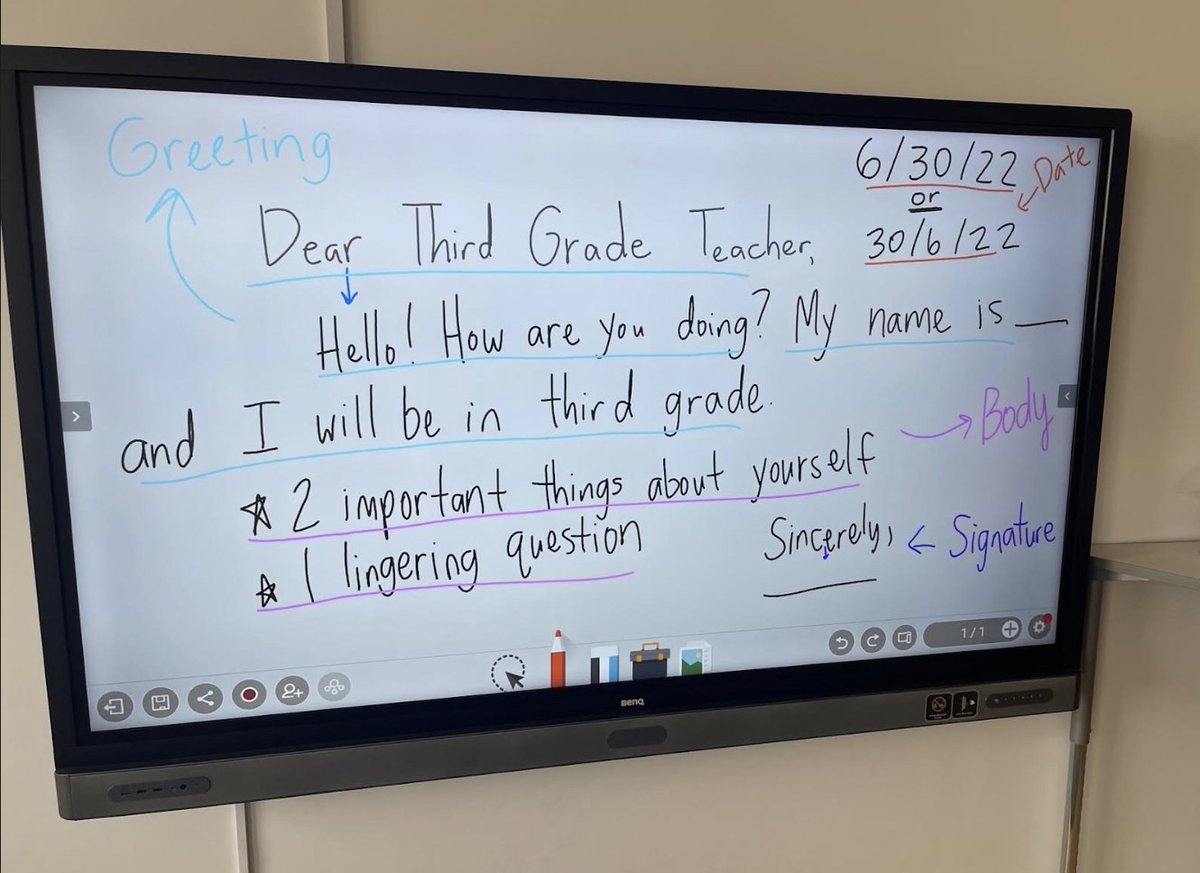 Greeting
6/30/22
or
30/6/22
Date
Dear Third Grade Teacher,
Hello! How are you doing? My name is __
and I will be in third grade.
Body
☆ 2 important things about yourself
☆ 1 lingering question
Sincerely,
Signature
1/1
BenQ